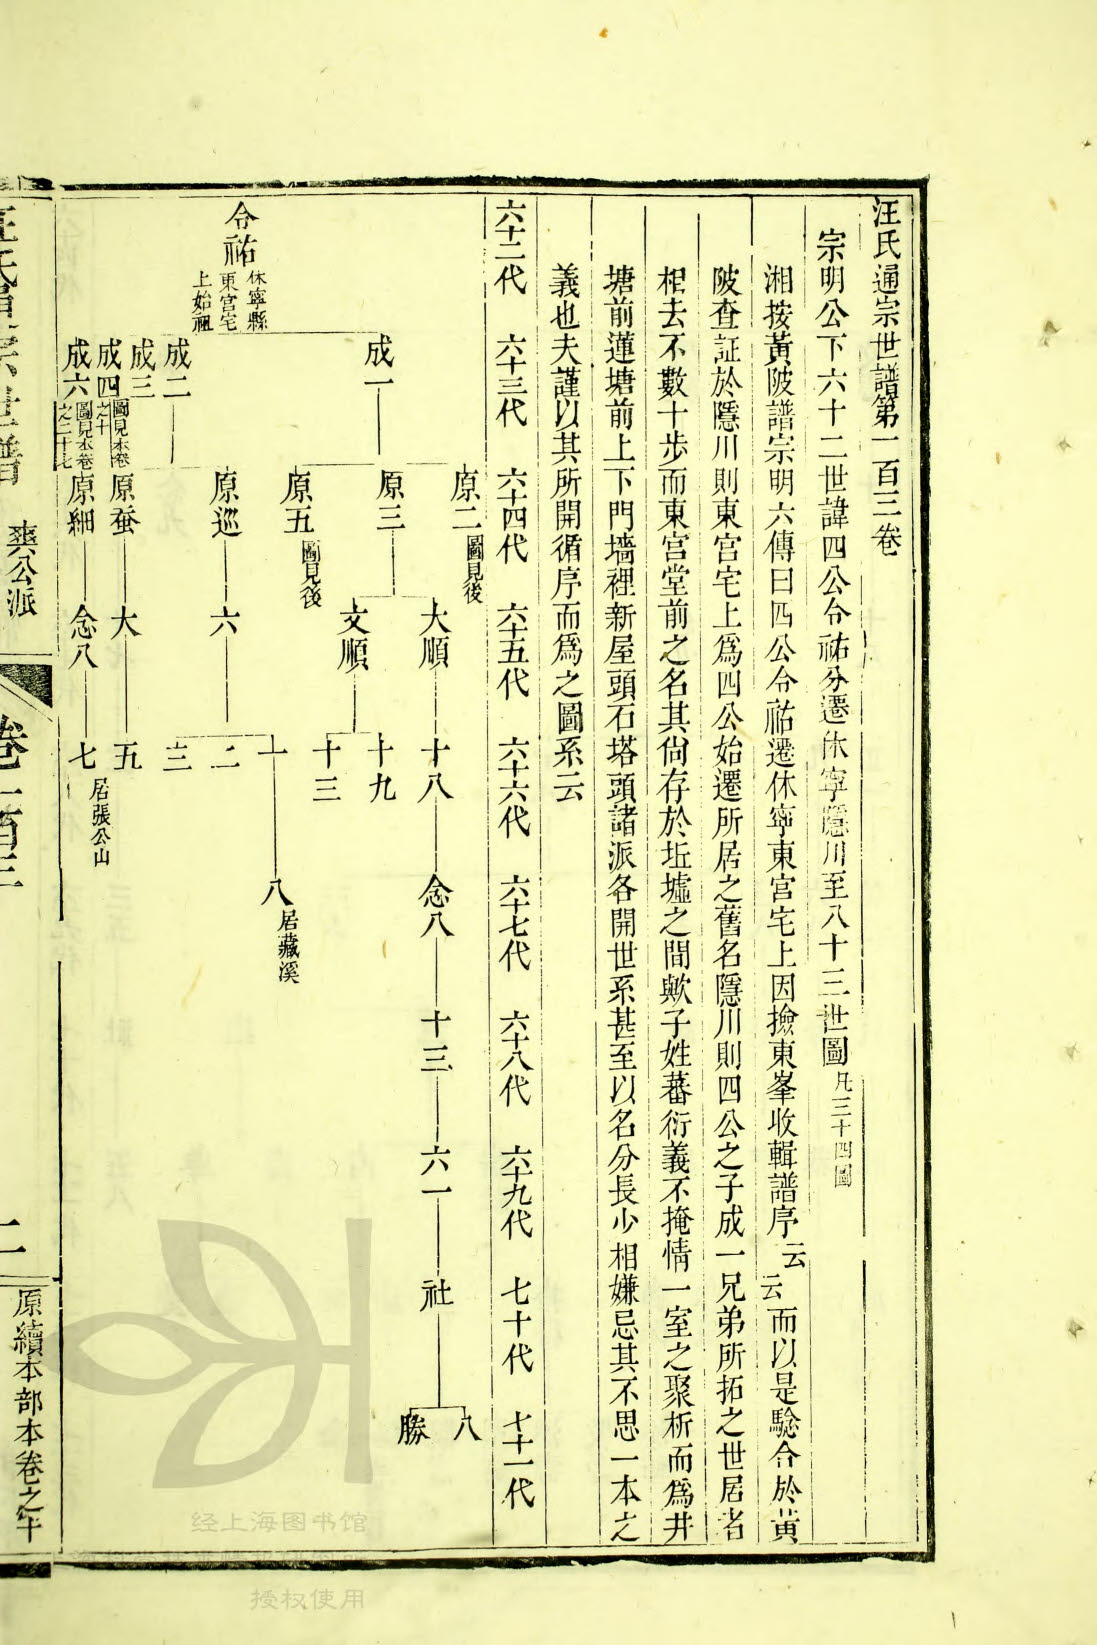 汪氏通宗世譜第一百三卷
宗明公下六十二世諱四公令祐分遷休寧隱川至八十三世圖凡三十四圖
湘按黃陂譜宗明六傳曰四公令祐遷休寧東宮宅上因撿東峯收輯譜序云云而以是驗合於黃
陂查証於隱川則東宮宅上爲四公始遷所居之舊名隱川則四公之子成一兄弟所拓之世居者
相去不數十步而東宮堂前之名其尚存於坵墟之間歟子姓蕃衍義不掩情一室之聚析而爲井
塘前蓮塘前上下門墻裡新屋頭石塔頭諸派各開世系甚至以名分長少相嫌忌其不思一本之
義也夫謹以其所開循序而爲之圖系云
六十二代 六十三代 六十四代 六十五代 六十六代 六十七代 六十八代 六十九代 七十代 七十一代
令祐 休寧縣東宮宅上始祖
成一
成二
成三
成四 圖見本卷之十
成六 圖見本卷之二十七
原二 圖見後
原三
原五 圖見後
原巡
原蚕
原細
大順
文順
六
大
念八
十八
十九
十三
一
二
三
五
七 居張公山
念八
八 居藏溪
十三
六一
社
八
勝
汪氏通宗世譜 爽公派 卷一百三 二 原續本部本卷之午
经上海图书馆
授权使用